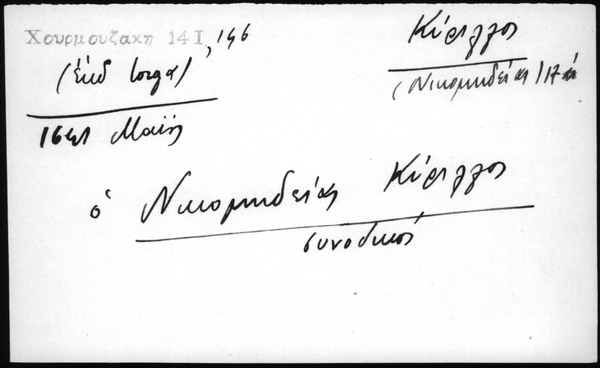 Χουρμουζακη 14Ι, 146
(Ἐκδ Iorga)
1641 Μαΐου
Κύριλλος
(Νικομηδείας) 17
ὁ Νικομηδείας Κύριλλος
συνοδικός